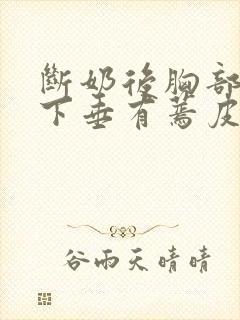 斷奶後胸部
下垂有蔫皮
谷雨天晴晴